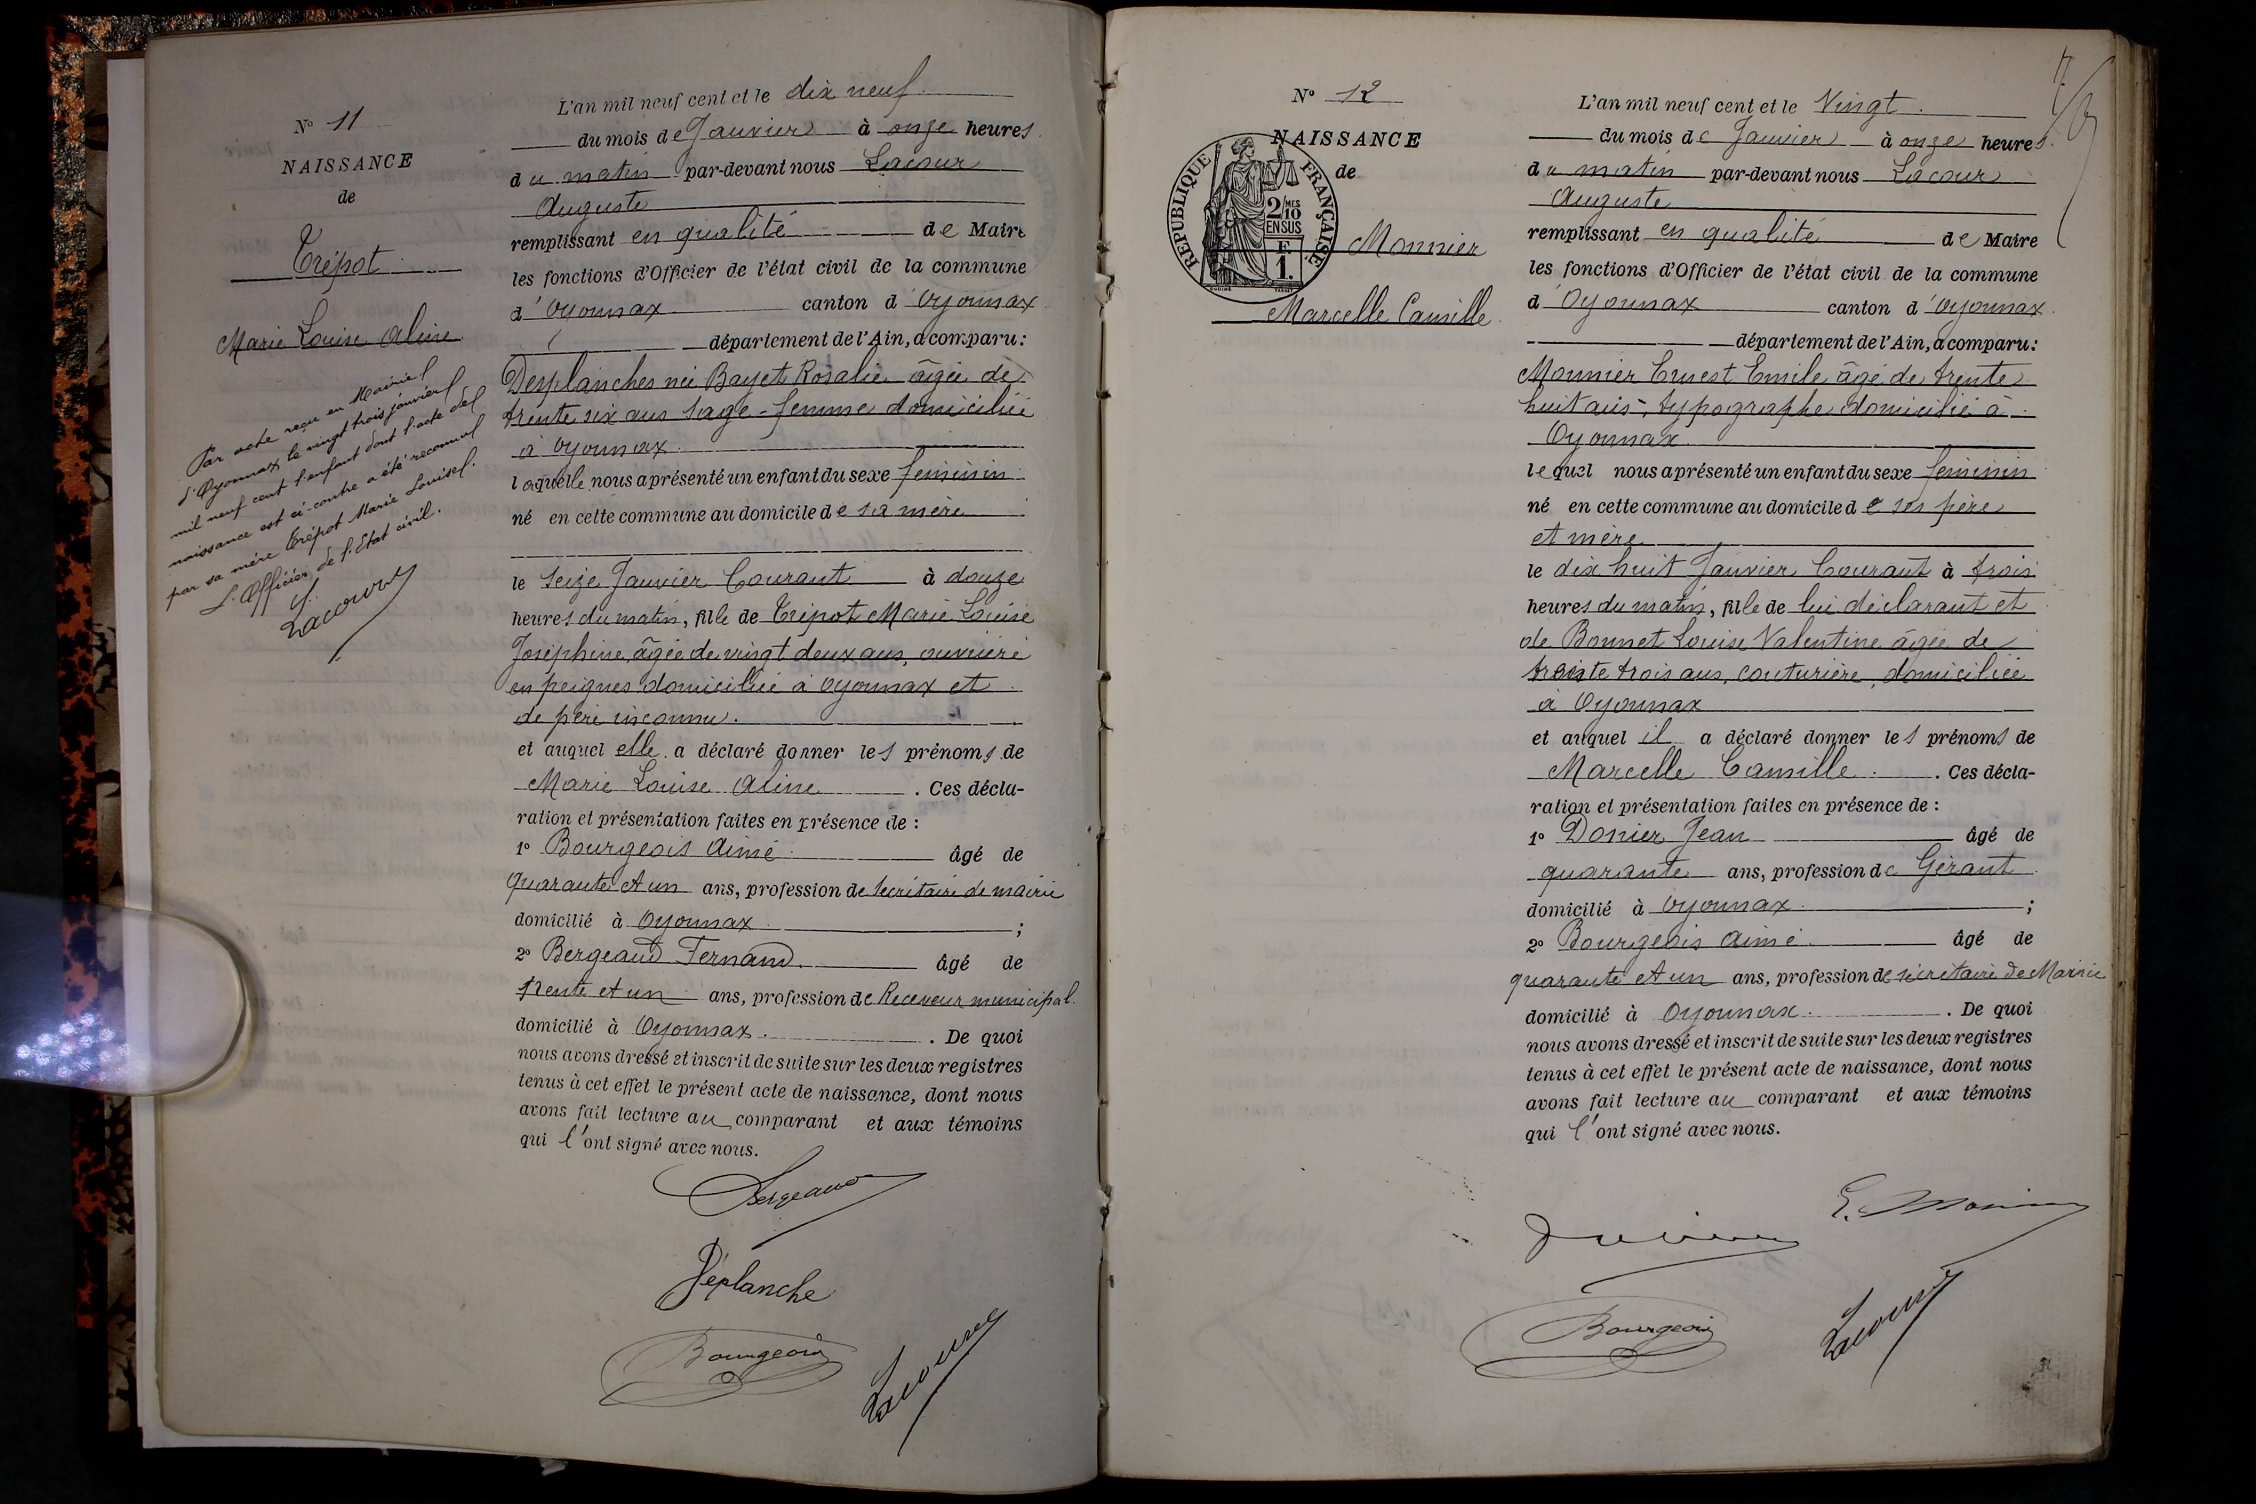 N° 11
NAISSANCE
de
Trépot
Marie Louise Aline
Par acte reçu en Mairie
d'Oyonnax le vingt trois janvier
mil neuf cent l'enfant dont l'acte de
naissance est ci-contre a été reconnu
par sa mère Trépot Marie Louise.
L'Officier de l'Etat civil.
Lacour
L'an mil neuf cent et le dix neuf
du mois de Janvier à onze heures
du matin par-devant nous Lacour
Auguste
remplissant en qualité de Maire
les fonctions d'Officier de l'état civil de la commune
d'Oyonnax canton d'Oyonnax
département de l'Ain, a comparu:
Desplanches née Bayet Rosalie âgée de
trente six ans sage-femme domiciliée
à Oyonnax
laquelle nous a présenté un enfant du sexe féminin
né en cette commune au domicile de sa mère
le seize Janvier Courant à douze
heures du matin, fille de Trépot Marie Louise
Joséphine, âgée de vingt deux ans, ouvrière
en peignes domiciliée à Oyonnax et
de père inconnu.
et auquel elle a déclaré donner les prénoms de
Marie Louise Aline. Ces décla-
ration et présentation faites en présence de :
1° Bourgeois Aimé âgé de
quarante et un ans, profession de secrétaire de mairie
domicilié à Oyonnax ;
2° Bergeaud Fernand âgé de
trente et un ans, profession de Receveur municipal.
domicilié à Oyonnax. De quoi
nous avons dressé et inscrit de suite sur les deux registres
tenus à cet effet le présent acte de naissance, dont nous
avons fait lecture au comparant et aux témoins
qui l'ont signé avec nous.
Bergeaud
Déplanche
Bourgeois
Lacour
N° 12
NAISSANCE
de
REPUBLIQUE FRANÇAISE
2/10 MES
EN SUS
F.
1.
Monnier
Marcelle Camille
L'an mil neuf cent et le Vingt
du mois de Janvier à onze heures
du matin par-devant nous Lacour
Auguste
remplissant en qualité de Maire
les fonctions d'Officier de l'état civil de la commune
d'Oyonnax canton d'Oyonnax
département de l'Ain, a comparu:
Monnier Ernest Emile âgé de trente
huit ans, typographe domicilié à
Oyonnax
lequel nous a présenté un enfant du sexe féminin
né en cette commune au domicile de ses père
et mère
le dix huit Janvier Courant à trois
heures du matin, fille de lui déclarant et
de Bonnet Louise Valentine âgée de
trente trois ans, couturière, domiciliée
à Oyonnax
et auquel il a déclaré donner les prénoms de
Marcelle Camille. Ces décla-
ration et présentation faites en présence de :
1° Donier Jean âgé de
quarante ans, profession de Gérant
domicilié à Oyonnax ;
2° Bourgeois Aimé âgé de
quarante et un ans, profession de secrétaire de Mairie
domicilié à Oyonnax. De quoi
nous avons dressé et inscrit de suite sur les deux registres
tenus à cet effet le présent acte de naissance, dont nous
avons fait lecture au comparant et aux témoins
qui l'ont signé avec nous.
E. Monnier
Bourgeois
Lacour